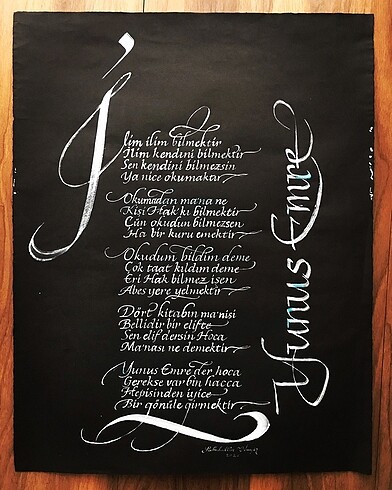 İlim ilim bilmektir
İlim kendini bilmektir
Sen kendini bilmezsin
Ya nice okumaktır
Okumadan ma'na ne
Kişi Hak'kı bilmektir
Çün okudun bilmezsen
Ha bir kuru emektir
Okudum bildim deme
Çok taat kıldım deme
Eri Hak bilmez isen
Abes yere yelmektir
Dört kitabın ma'nisi
Bellidir bir elifte
Sen elif dersin Hoca
Ma'nası ne demektir
Yunus Emre der hoca
Gerekse var bin hacca
Hepisinden iyice
Bir gönüle girmektir
Yunus Emre